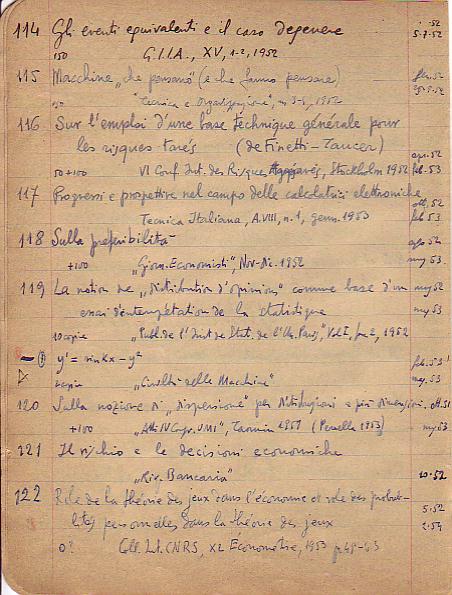 114 Gli eventi equivalenti e il caso degenere .52
150 G.I.I.A., XV, 1-2, 1952 5.7.52
115 Macchine „che pensano" (e che fanno pensare)
50 "Tecnica e Organizzazione", 1952
116 Sur l'emploi d'une base technique générale pour
les risques tarés (de Finetti-
50+100 VI Conf. Int. des Risques Stockholm 1952 53
117 Progressi e prospettive nel campo delle calcolatrici elettroniche
Tecnica Italiana, A.VIII, n.1, genn. 1953 53
118 Sulla preferibilità 52
+100 „Giorn. Economisti", Nov-Dic. 1952 53
119 La notion de „distribution d'opinion" comme base d'un 52
essai d'interprétation de la statistique 53
10 copie „Publ. de l'Inst. de Stat. de l'Un. Paris", Vol I, 2, 1952
y' = sin Kx - y² 53
copie „Civiltà delle Macchine" 53
120 Sulla nozione di „dispersione" per distribuzioni a più dimensioni. 51
+100 „Atti IV Congr. UMI", Taormina 1951 (Perrella 1953) 53
121 Il rischio e le decisioni economiche
„Riv. Bancaria" 10.52
122 Rôle de la théorie des jeux dans l'économie et rôle des probabi- 5.52
lités personnelles dans la théorie des jeux 2.54
0? Coll. Int. CNRS, XL Économétrie, 1953 p.49-63